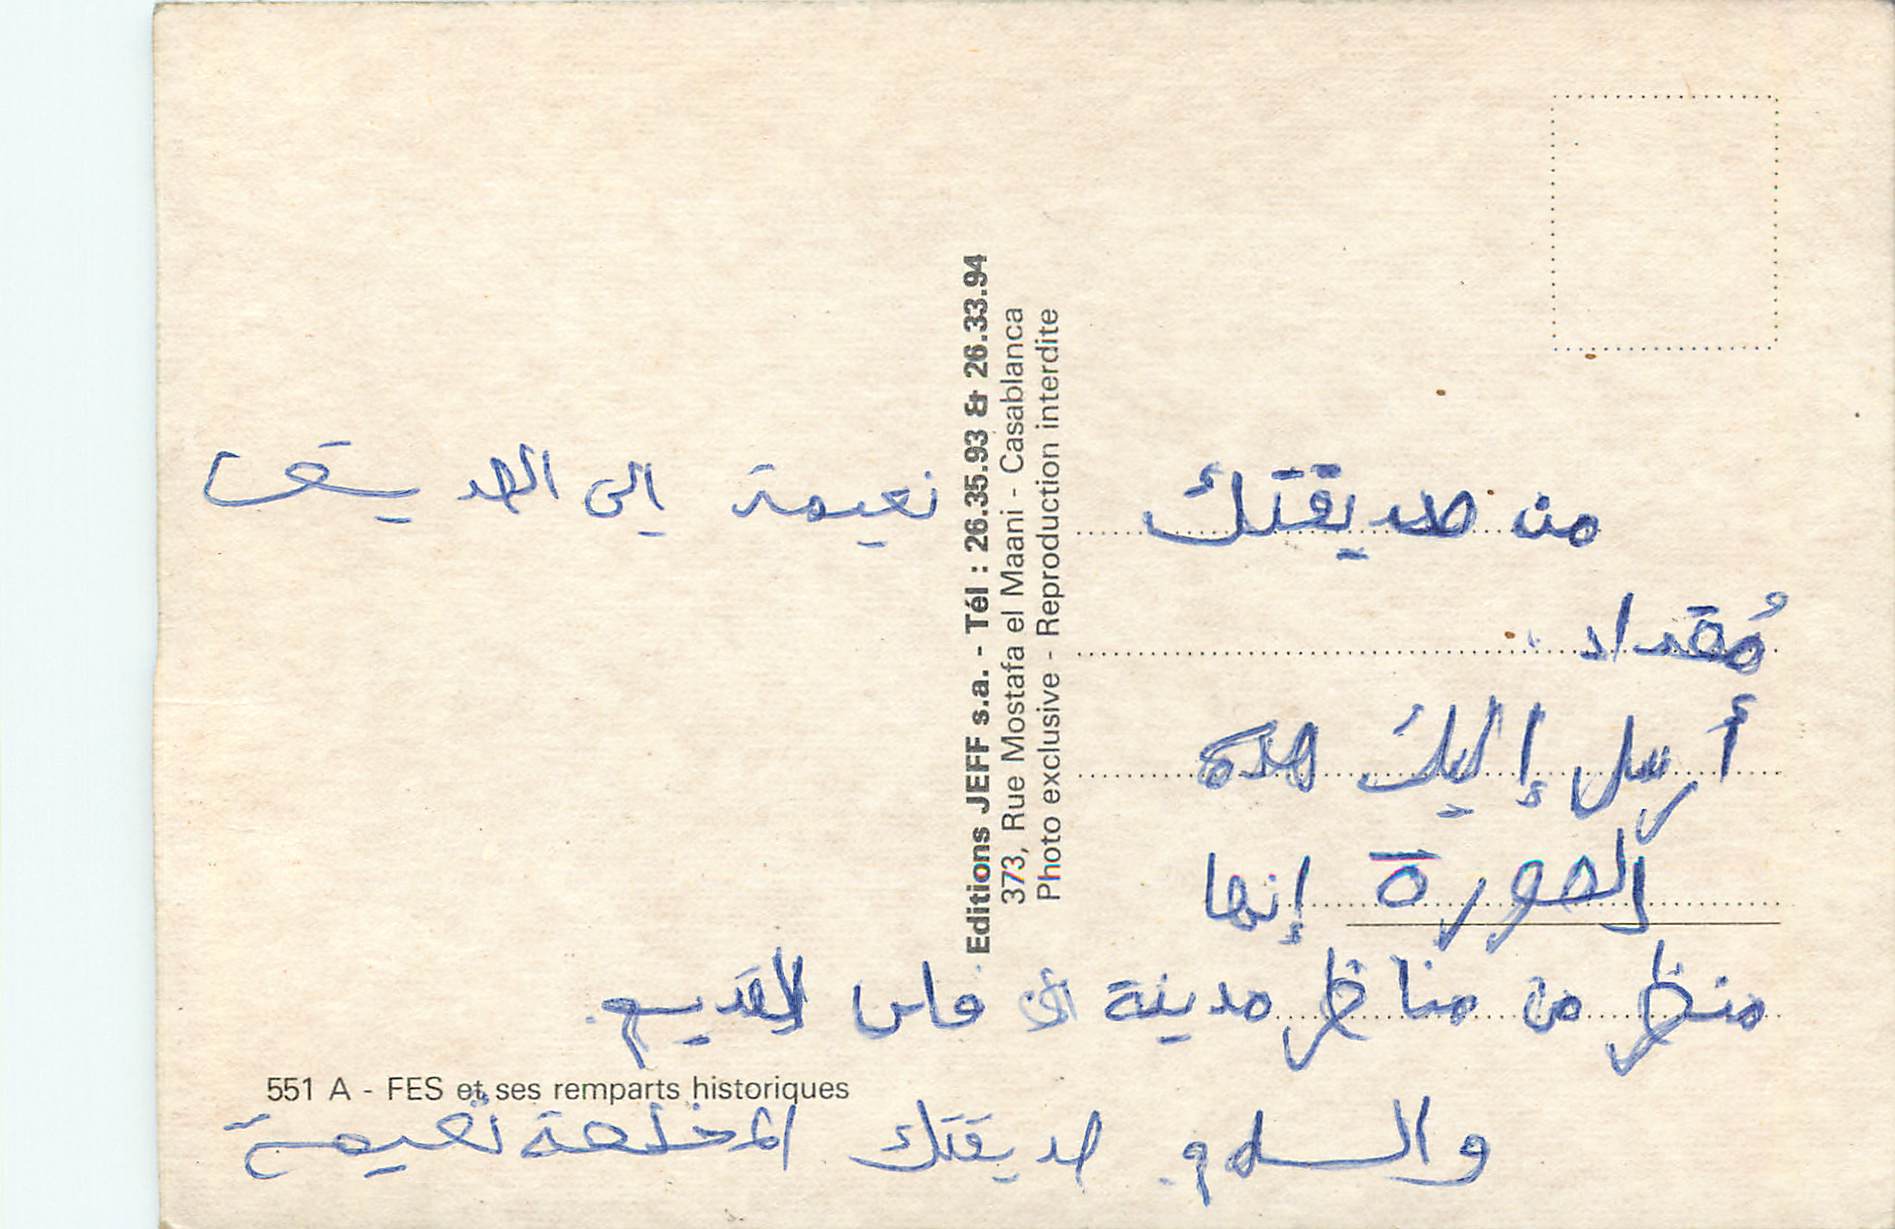 من صديقتك نعيمة إلى الصديق
مُقداد
أرسل إليك هده
الصورة إنها
منظر من مناظر مدينة فاس القديم.
551 A - FES et ses remparts historiques
والسلام. صديقتك المخلصة نعيمة
Editions JEFF s.a. - Tél : 26.35.93 & 26.33.94
373, Rue Mostafa el Maani - Casablanca
Photo exclusive - Reproduction interdite